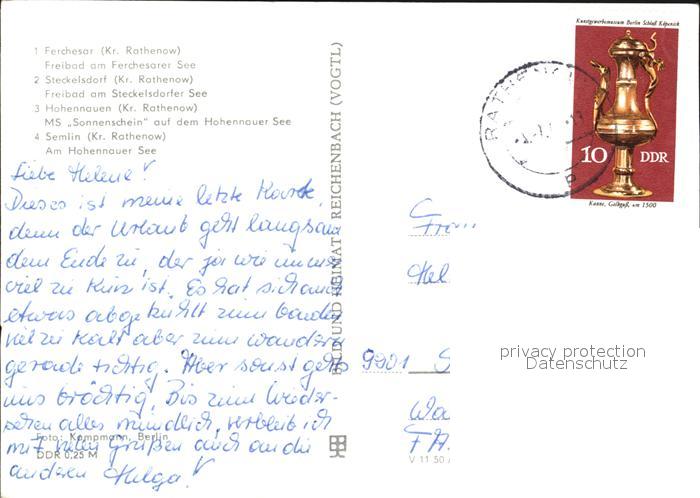 1 Ferchesar (Kr. Rathenow)
Freibad am Ferchesarer See
2 Steckelsdorf (Kr. Rathenow)
Freibad am Steckelsdorfer See
3 Hohennauen (Kr. Rathenow)
MS „Sonnenschein" auf dem Hohennauer See
4 Semlin (Kr. Rathenow)
Am Hohennauer See
Liebe Helene!
Dieses ist meine letzte Karte,
denn der Urlaub geht langsam
dem Ende zu, der ja wie immer
viel zu kurz ist. Es hat sich auch
etwas abgekühlt zum baden
viel zu kalt aber zum wandern
gerade richtig. Aber sonst gehts
uns prächtig. Bis zum Wieder-
sehen alles mündlich, verbleib ich
mit vielen Grüßen auch an die
anderen Helga!
Foto: Kampmann, Berlin
DDR 0,25 M
BILD UND HEIMAT REICHENBACH (VOGTL)
Kunstgewerbemuseum Berlin Schloß Köpenick
10 DDR
Kanne, Gelbguß, um 1500
RATHENOW
Hel
9901 S
privacy protection
Datenschutz
Wa
V 11 50